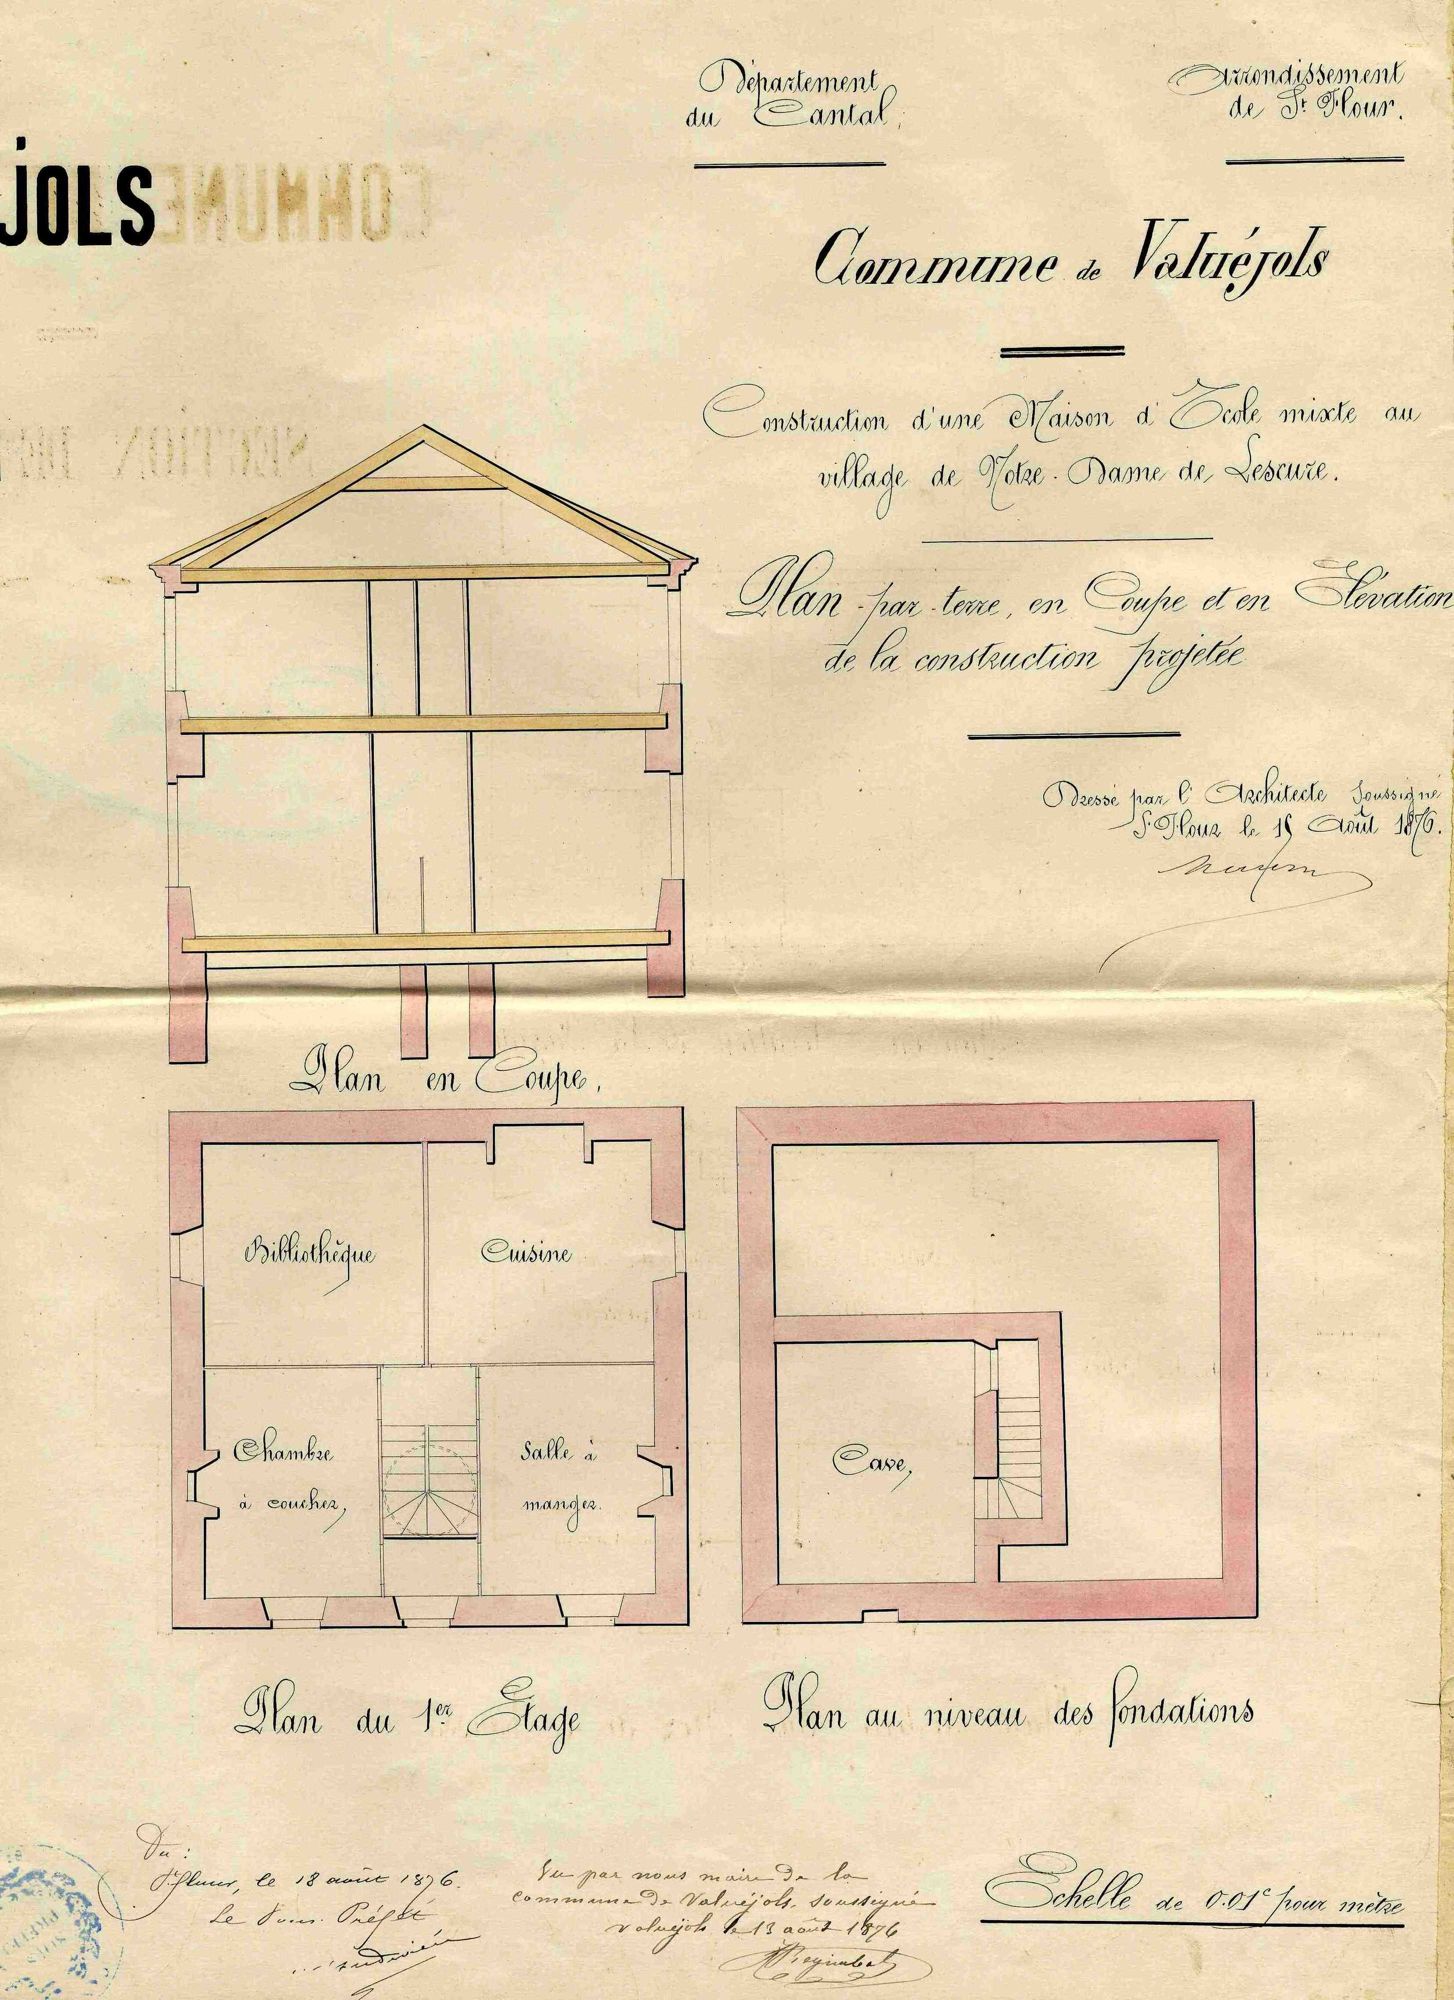 Département
du Cantal,
Arrondissement
de St Flour.
JOLS
COMMUNE
Commune de Valuéjols
SECTION
Construction d'une Maison d'Ecole mixte au
village de Notre-Dame de Lescure.
Plan par terre, en Coupe et en Élévation
de la construction projetée
Dressé par l'Architecte soussigné
St Flour le 15 Août 1876.
Plan en Coupe,
Bibliothèque
Cuisine
Chambre
à coucher,
Salle à
manger.
Cave,
Plan du 1er Étage
Plan au niveau des fondations
Vu:
St flour, le 18 août 1876.
Le Sous-Préfet
Vu par nous maire de la
commune de Valuéjols soussigné
Valuéjols le 13 août 1876
Echelle de 0.01c pour mètre